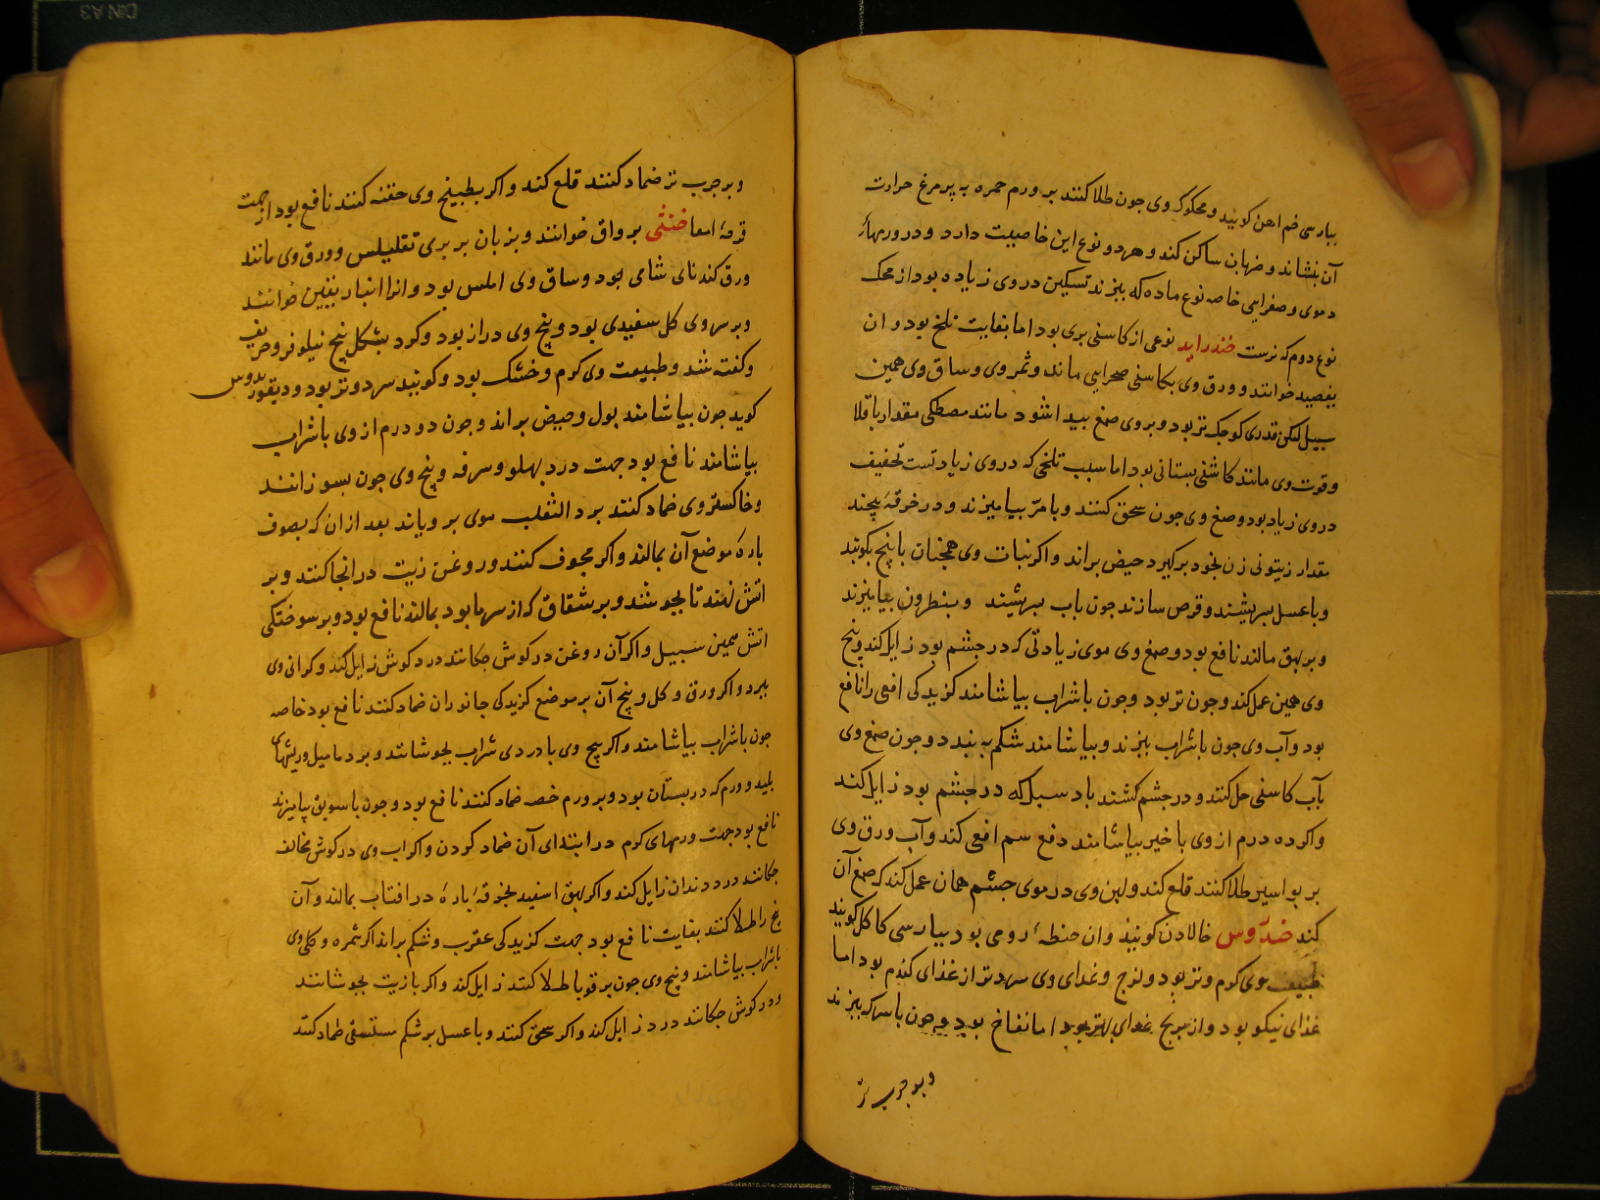 بپارسی خم اهن کویند و محکوک وی چون طلا کنند بر ورم حمره به پر مرغ حرارت
آن بنشاند و ضربان ساکن کند و هر دو نوع این خاصیت دارد و در ورمهاء
دموی و صفرایی خاصه نوع ماده که بپزند تسکین در وی زیاده بود از محک
نوع دوم که نرست خندرایه نوعی از کاسنی بری بود اما بغایت تلخ بود و ان
یعضید خوانند و ورق وی بکاسنی صحرایی ماند و ثمر وی و ساق وی همین
سبیل لیکن قدری کوچک تر بود و بر وی صمغ پیدا شود مانند مصطکی مقدار باقلا
و قوت وی مانند کاشنی بستانی بود اما سبب تلخی که در وی زیادتست تجفیف
در وی زیاد بود و صمغ وی چون سحق کنند و با مرّ بیامیزند و در خرقهٔ پیچند
مقدار زیتونی زن بخود برگیرد حیض براند و اکر نبات وی همچنان با بیخ بکوبند
و با عسل بسرشند و قرص سازند چون باب بسرشند و بنطرون بیامیزند
و بر بهق مالند نافع بود و صمغ وی موی زیادتی که در چشم بود زایل کند و بیخ
وی همین عمل کند و چون تر بود و چون با شراب بیاشامند کزیدکی افعی را نافع
بود و آب وی چون با شراب بپزند و بیاشامند شکم به بندد و چون صمغ وی
بآب کاسنی حل کنند و در چشم کشند باد سبل که در چشم بود زایل کند
و اکر ده درم از وی با خمر بیاشامند دفع سم افعی کند و آب ورق وی
بر بواسیر طلا کنند قلع کند و لبن وی در موی چشم همان عمل کند که صمغ آن
کند خندروس خالادن کویند وان حنطهٔ رومی بود بپارسی کاکل کویند
طبیعت وی کرم و تر بود و لزج و غذای وی سردتر از غذای کندم بود اما
غذای نیکو بود و از برنج غذای بهتر بود اما نفاخ بود و چون با سرکه بپزند
و بر جرب تر
و بر جرب تر ضماد کنند قلع کند و اکر بطبیخ وی حقنه کنند نافع بود از جهت
قرحهٔ امعا خنثی برواق خوانند و بزبان بربری تقلیلس و ورق وی مانند
ورق کندنای شامی بود و ساق وی املس بود و انرا خوانند
و بر سر وی کل سفیدی بود و بیخ وی دراز بود و کرد بشکل بیخ نیلوفر و حریف
و کفته شد و طبیعت وی کرم و خشک بود و کویند سرد و تر بود و دیقوریدوس
کوید چون بیاشامند بول و حیض براند و چون دو درم از وی با شراب
بیاشامند نافع بود جهت درد پهلو و سرفه و بیخ وی چون بسوزانند
و خاکستر وی ضماد کنند بر داء الثعلب موی برویاند بعد از ان که بصوف
پارهٔ موضع آن بمالند و اکر مجوف کنند و روغن زیت در انجا کنند و بر
اتش نهند تا بجوشد و بر شقاق که از سرما بود بمالند نافع بود و بر سوختکی
اتش همین سبیل و اکر آن روغن در کوش چکانند درد کوش زایل کند و کرانی وی
ببرد و اکر ورق و کل و بیخ آن بر موضع کزیدکی جانوران ضماد کنند نافع بود خاصه
چون با شراب بیاشامند و اکر بیخ وی با دردی شراب بجوشانند و بر دمامیل و ریشهای
پلید و ورم که در پستان بود و بر ورم خصیه ضماد کنند نافع بود و چون با سویق بیامیزند
نافع بود جهت ورمهای کرم در ابتدای آن ضماد کردن و اکر اب وی در کوش مخالف
چکانند درد دندان زایل کند و اکر بهق اسفید بخرقهٔ پارهٔ در افتاب بمالند و آن
بیخ را طلا کنند بغایت نافع بود جهت کزیدکی عقرب و شکم براند اکر ثمره و کل وی
باشراب بیاشامند و بیخ وی چون بر قوبا طلا کنند زایل کند و اکر با زیت بجوشانند
و در کوش چکانند درد زایل کند و اکر سحق کنند و با عسل بر شکم مستسقی ضماد کنند